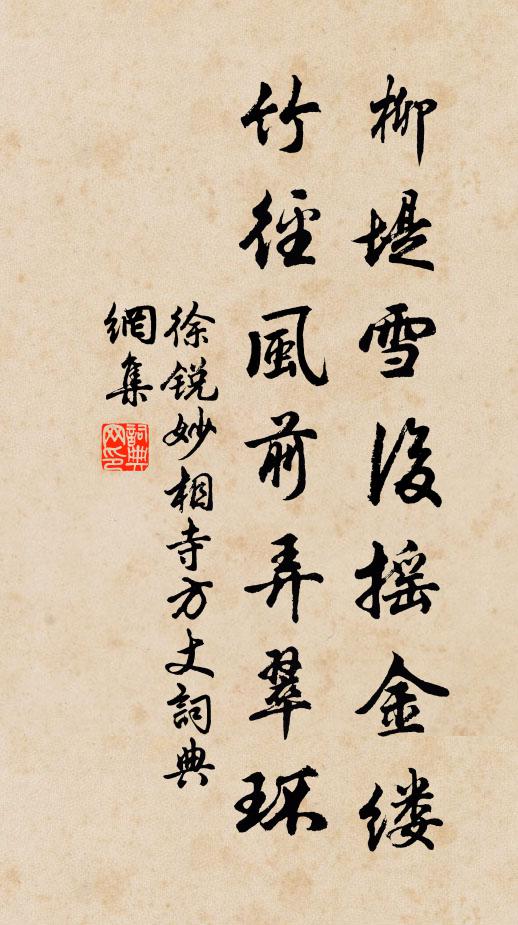 柳堤雪後摇金缕
竹徑風前弄翠环
徐锐妙相寺方丈詞典
網集
詞典
网印